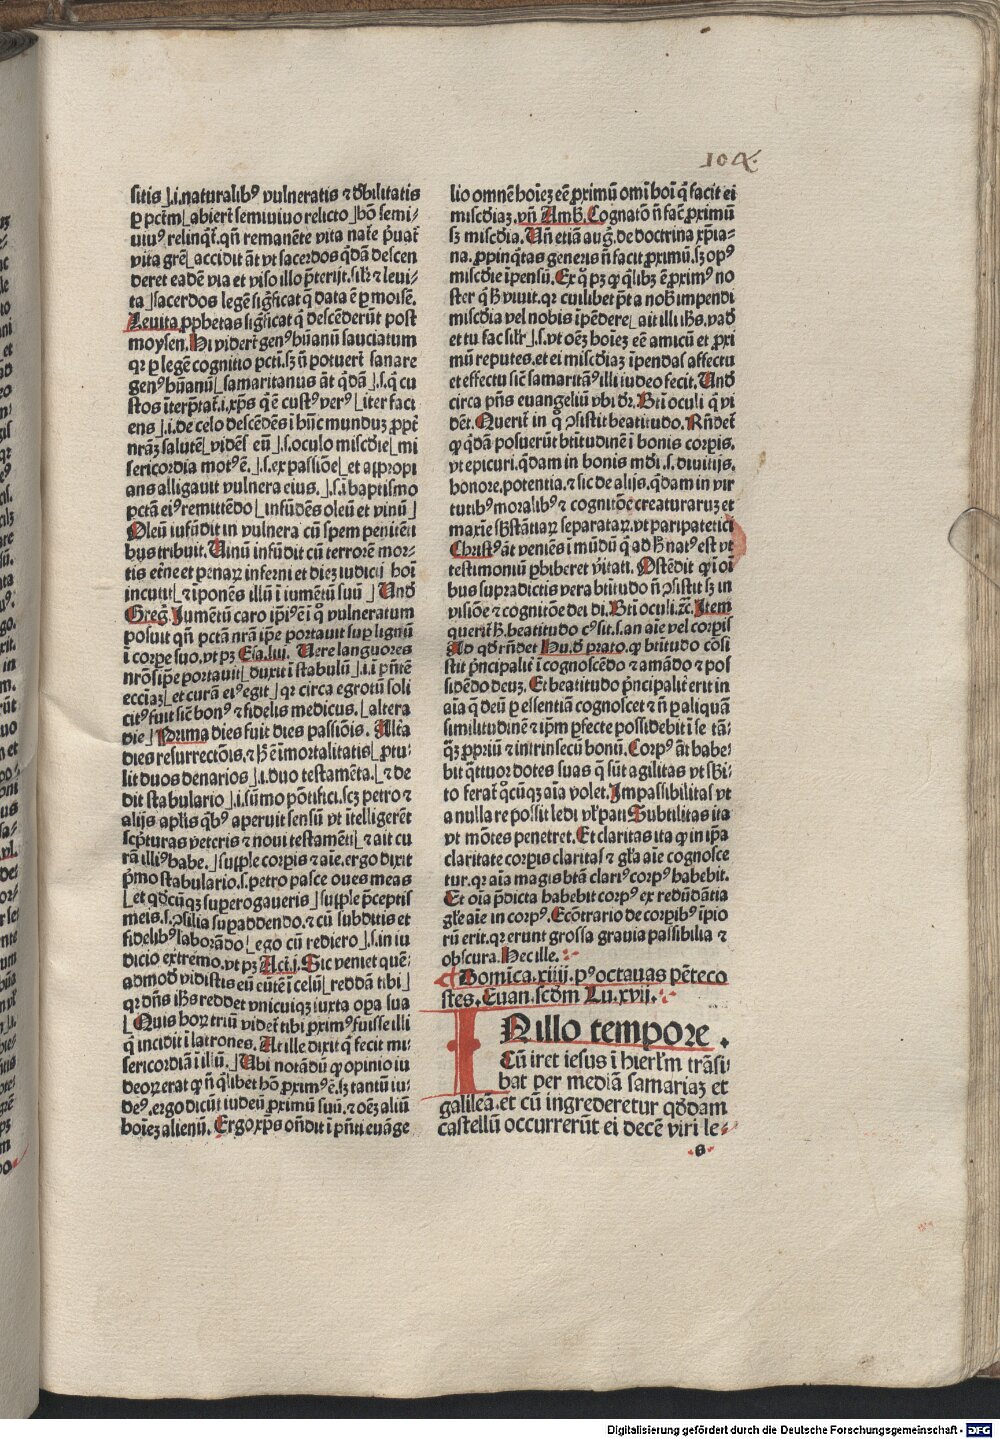 104.
sitis ⌋.i. naturalibꝰ vulneratis ⁊ đbilitatis
ꝑ pctm̄ ⌊abiert̄ semiuiuo relicto ⌋hō semi/
uiuꝰ relinqt̄. qn̄ remanēte vita nat̄e p̄uat̄
vita grē⌊accidit āt vt sacerdos q̄dā descen
deret eadē via et viso illo p̄terijt. silr̄ ⁊ leui/
ta ⌋sacerdos legē sigficat q̄ data ē ꝑ moisē.
Leuita ꝓphetas sigficat q̄ descēderūt post
moysen. Hi vidert̄ genꝰ hūanū sauciatum
qr ꝑ legē cognitio pcti. sꝫ n̄ potuert̄ sanare
genꝰ hūanū ⌊samaritanus āt q̄dā ⌋.s. q̄ cu
stos īterp̄tat̄. i. xp̄s q̄ ē custꝰ verꝰ ⌊iter faci
ens ⌋.i. de celo descēdēs ī hūc mundū ꝓpt̄
nrāꝫ salutē⌊vidēs eū ⌋.s. oculo miscdie⌊mi
sericordia motꝰ ē. ⌋.s. ex passiōe⌊et appropi
ans alligauit vulnera eius. ⌋.s. ī baptismo
pctā eiꝰ remittēdo ⌊infūdēs oleū et vinū ⌋
Oleū iufūdit in vulnera cū spem penitēti
bus tribuit. Uinū infūdit cū terrorē mor/
tis etne et penaꝝ inferni et dieꝫ iudicij hoī
incutit⌊⁊ īponēs illū ī iumētū suū ⌋ Und
Greg. Jumētū caro ipīꝰ ē ī q̊ vulneratum
posuit qn̄ pctā nrā ip̄e portauit suꝑ lignū
ī corpe suo. vt pꝫ Esa. liij. Uere languores
nrōs ip̄e portauit⌊duxit ī stabulū⌋.i. ī pn̄tē
ecciaꝫ⌊et curā eiꝰ egit⌋qr circa egrotū soli
citꝰ fuit sic̄ bonꝰ ⁊ fidelis medicus. ⌊altera
die⌋Prima dies fuit dies passiōis. Alt̄a
dies resurrectōis. ⁊ h̄ ē īmortalitatis⌊ptu/
lit duos denarios⌋.i. duo testamēta.⌊⁊ de
dit stabulario⌋.i. sūmo pōtifici. scꝫ petro ⁊
alijs aplīs q̄bꝰ aperuit sensū vt ītelligerēt
scp̄turas veteris ⁊ noui testamēti⌊⁊ ait cu
rā illiꝰ habe. ⌋supple corpis ⁊ aīe. ergo dixit
p̄mo stabulario. s. petro pasce oues meas
⌊et qdcūqꝫ superogaueris⌋supple p̄ceptis
meis. s. ↄsilia suꝑaddendo. ⁊ cū subditis et
fidelibꝰ laborādo⌊ego cū rediero⌋.s. in iu
dicio extremo. vt pꝫ Act. j. Sic veniet quē/
admodū vidistis eū eūtē ī celū⌊reddā tibi⌋
qr dn̄s ihs̄ reddet vnicuiqꝫ iuxta oꝑa sua
⌊Quis hoꝝ triū videt̄ tibi proximꝰ fuisse illi
q̄ incidit ī latrones. At ille dixit q̄ fecit mi/
sericordiā ī illū.⌋Ubi notādū ꝙ opinio iu
deoꝝ erat ꝙ n̄ q̄libet hō proximꝰ ē. sꝫ tantū iu/
deꝰ. ergo dicūt iudeū proximū suū. ⁊ oēꝫ aliū
hoīeꝫ alienū. Ergo xp̄s on̄dit ī pn̄ti euāge
lio omnē hoīeꝫ eē proximū omī hoī q̄ facit ei
miscdiaꝫ. vn̄ Amb. Cognatō n̄ fac̄ proximū
sꝫ miscdia. Un̄ etiā aug. de doctrina xp̄ia/
na. ꝓpinq̄tas generis n̄ facit proximū. sꝫ opꝰ
miscdie īpensū. Ex q̊ pꝫ ꝙ q̄libꝫ ē proximꝰ no
ster q̄ h̄ viuit. qr cuilibet pt̄a nob̄ impendi
miscdia vel nobis īpēdere⌊ait illi ihs̄. vad
et tu fac silr̄ ⌋.s. vt oēs hoīeꝫ eē amicū et proxi
mū reputes. et ei miscdiaꝫ īpendas affectu
et effectu sic̄ samaritāꝰ illi iudeo fecit. Und
circa pn̄s euangeliū vbi dr̄. Bt̄i oculi q̄ vi
dēt. Querit̄ in q̊ ↄsistit beatitudo. Rn̄det̄
ꝙ q̄dā posuerūt btitudinē ī bonis corpis.
vt epicuri. q̄dam in bonis mdi. s. diuitijs.
honore. potentia. ⁊ sic de alijs. q̄dam in vir
tutibꝰ moralibꝰ ⁊ cognitōe creaturaruꝫ et
maxīe sb̄stātiaꝝ separataꝝ. vt paripatetici
Christꝰ āt veniēs ī mūdū q̄ ad h̄ natꝰ est vt
testimoniū ꝑhiberet vitati. Ostēdit qr ī oī
bus supradictis vera btitudo n̄ ↄsistit sꝫ in
visiōe ⁊ cognitōe dei di. Bt̄i oculi. ⁊c̄. Item
querit̄ h̄. beatitudo cꝰ sit. s. an aīe vel corpis
Ad qd rn̄det Hu. đ prato. ꝙ btitudo cōsi
stit p̄ncipalit̄ ī cognoscēdo ⁊ amādo ⁊ pos
sidēdo deuꝫ. Et beatitudo p̄ncipalit̄ erit in
aīa q̄ deū ꝑ essentiā cognoscet ⁊ n̄ ꝑ aliquā
similitudinē ⁊ ip̄m ꝑfecte possidebit ī se tā/
q̄ꝫ ꝓpriū ⁊ intrinsecū bonū. Corpꝰ āt habe/
bit q̄ttuor dotes suas q̄ sūt agilitas vt sbi/
to ferat̄ q̊cūqꝫ aīa volet. Impassibilitas vt
a nulla re possit ledi vl̄ pati Subtilitas ita
vt mōtes penetret. Et claritas ita ꝙ in ip̄a
claritate corpis claritas ⁊ gl̄a aīe cognosce
tur. qr aīa magis btā clariꝰ corpꝰ habebit.
Et oīa p̄dicta habebit corpꝰ ex redūdātia
gl̄e aīe in corpꝰ. Ecōtrario de corpibꝰ īpio
rū erit. qr erunt grossa grauia passibilia ⁊
obscura. Hec ille.
Domīca. xiiij. pꝰ octauas pēteco
stes. Euan. scdm Lu. xvij.
IN illo tempore.
Cū iret iesus ī hierl̄m trāsi/
bat per mediā samariaꝫ et
galileā. et cū ingrederetur qddam
castellū occurrerūt ei decē viri le/
s
Digitalisierung gefördert durch die Deutsche Forschungsgemeinschaft - DFG